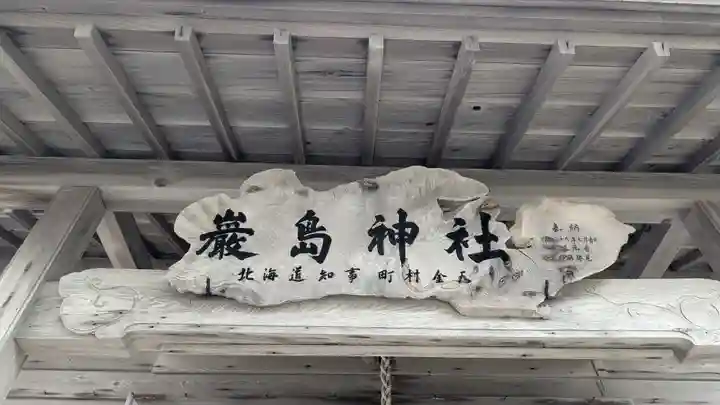 巖島神社
北海道知事町村金五
奉納